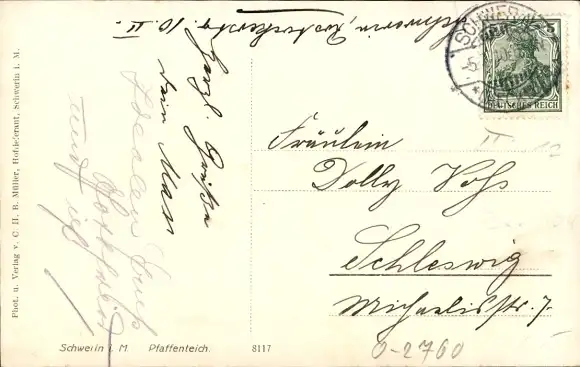 Schwerin, Rostockerstr. 10. II.
Herzl. Grüße
Dein Max
und ich!
Phot. u. Verlag v. C. H. B. Müller, Hoflieferant, Schwerin i. M.
Schwerin i. M. Pfaffenteich. 8117
SCHWERIN
5
DEUTSCHES REICH
II
Fräulein
Dolly Vohs
Schleswig
Michaelisstr. 7.
0-2760